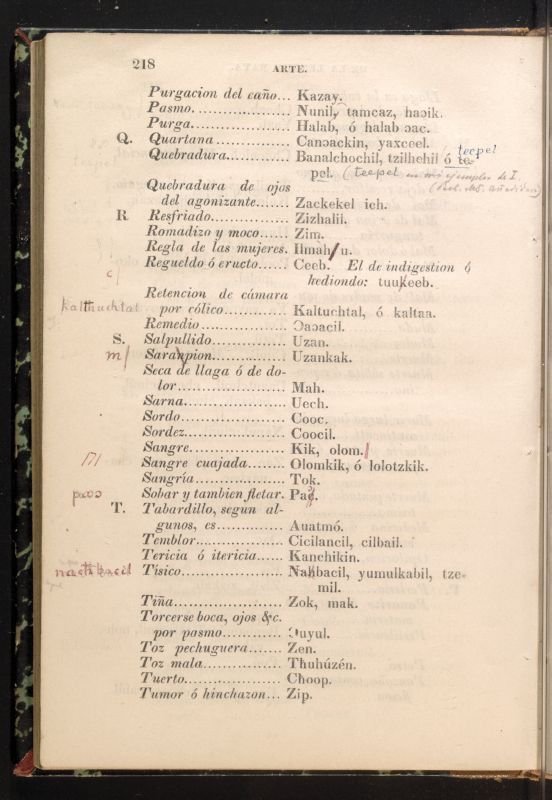 218
ARTE.
Purgacion del caño... Kazay.
Pasmo.................. Nunil, tamcaz, haɔik.
Purga.................. Halab, ó halab ɔac.
Q. Quartana ............. Canɔackin, yaxceel.
Quebradura............ Banalchochil, tzilhehil ó te- tecpel
pel. (tecpel en mis ejemplos de I.
Quebradura de ojos
del agonizante....... Zackekel ich.
R Resfriado.............. Zizhalil.
Romadizo y moco...... Zim.
Regla de las mujeres. Ilmah/u.
c/ Regueldo ó eructo...... Ceeb. El de indigestion ó
hediondo: tuukeeb.
Retencion de cámara
kaltuchtal por cólico............. Kaltuchtal, ó kaltaa.
Remedio ............... Ɔaɔacil.
S. Salpullido.............. Uzan.
m/ Saranpion.............. Uzankak.
Seca de llaga ó de do-
lor................... Mah.
Sarna................... Uech.
Sordo................... Cooc.
Sordez.................. Coocil.
Sangre.................. Kik, olom./
Sangre cuajada....... Olomkik, ó lolotzkik.
Sangría................. Tok.
Sobar y tambien fletar. Paɔ.
T. Tabardillo, segun al-
gunos, es............. Auatmó.
Temblor................ Cicilancil, cilbail.
Tericia ó itericia...... Kanchikin.
Tísico................... Nakbacil, yumulkabil, tze-
mil.
Tiña.................... Zok, mak.
Torcerse boca, ojos &c.
por pasmo........... Ɔuyul.
Toz pechuguera...... Zen.
Toz mala............... Thuhúzén.
Tuerto.................. Choop.
Tumor ó hinchazon... Zip.